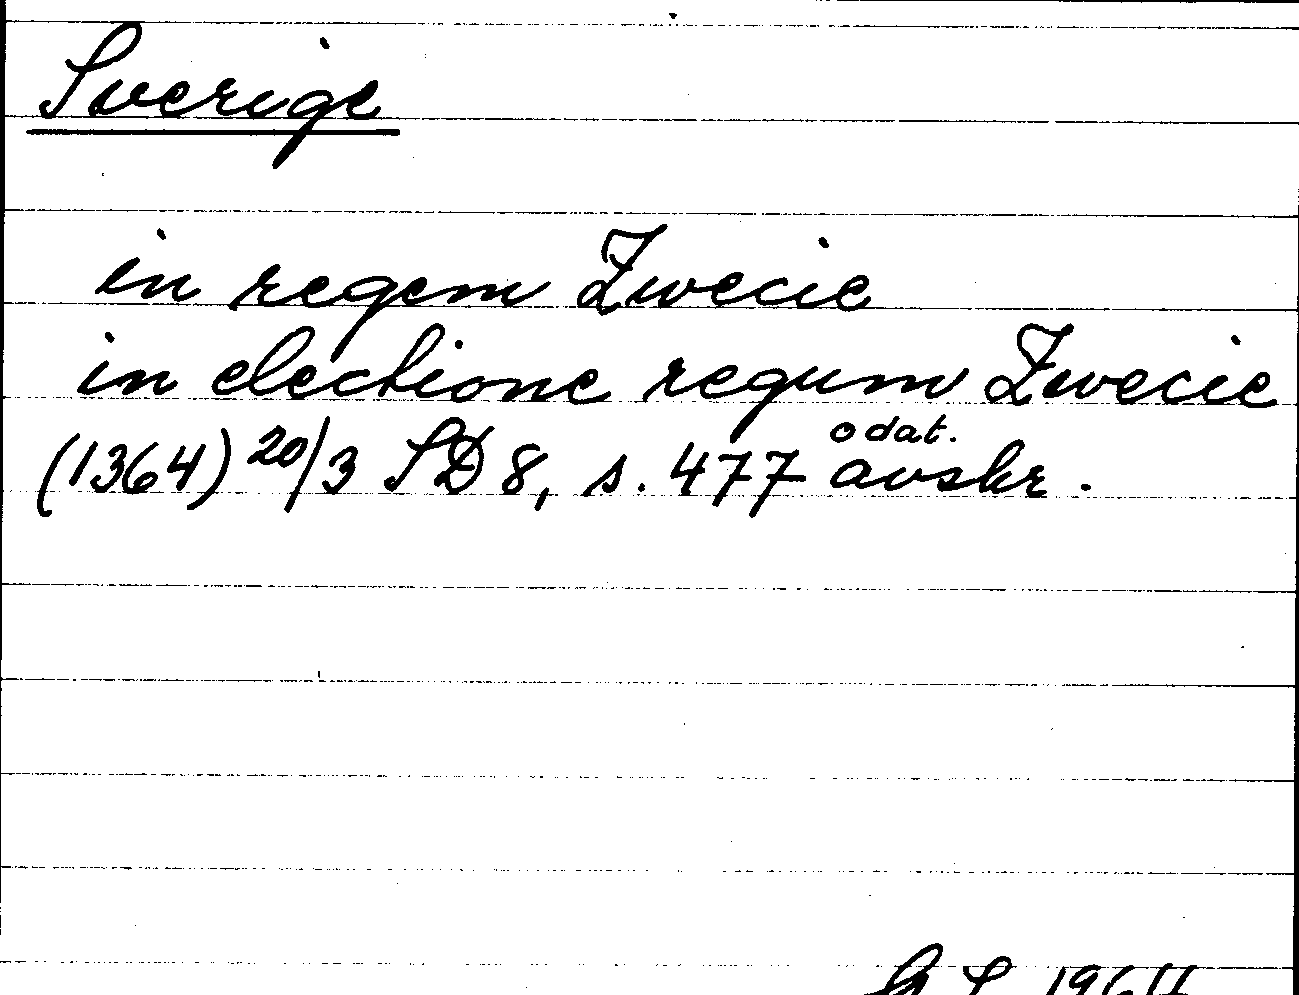 Sverige
in regem Zwecie
in electione regum Zwecie
odat.
(1364) 20/3 SD 8, s. 477 avskr.